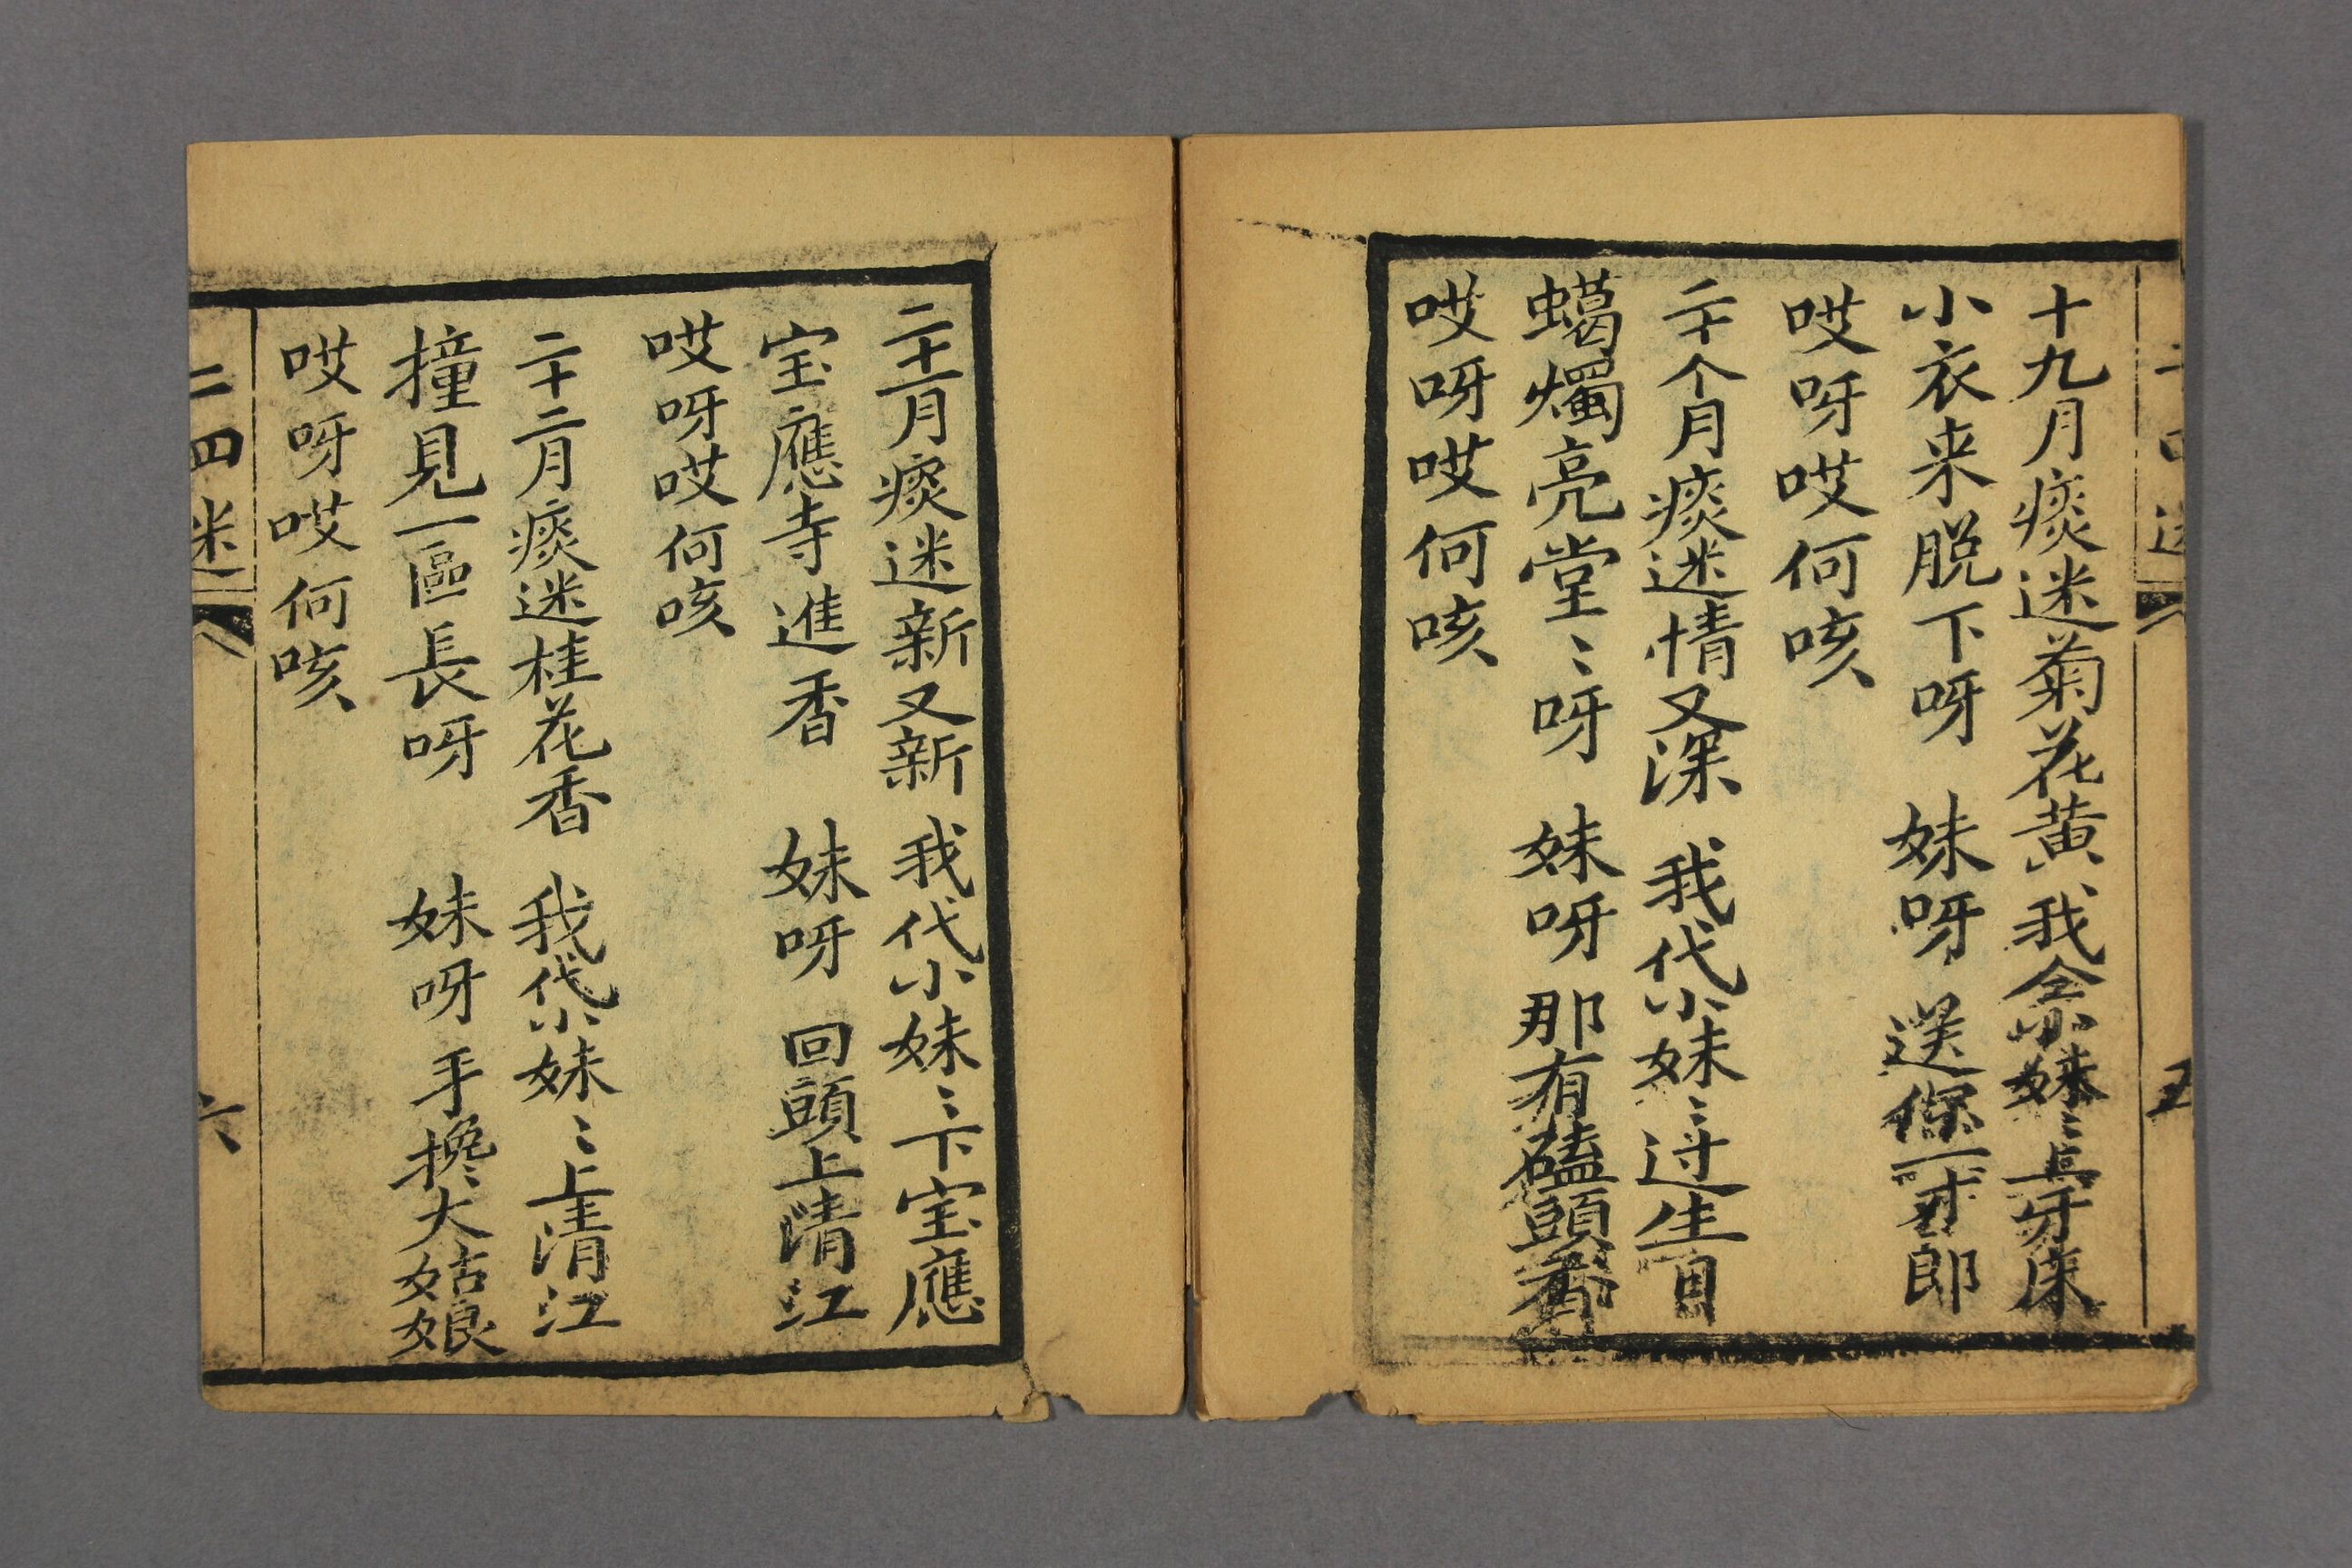 十九月痰迷菊花黄我念小妹〻上牙床
小衣来脱下呀 妹呀 送你一才郎
哎呀哎何咳
二十个月痰迷情又深 我代小妹〻过生日
蠍燭亮堂〻呀 妹呀 那有磕頭香
哎呀哎何咳
二十一月痰迷新又新 我代小妹〻下宝應
宝應寺進香 妹呀 回頭上清江
哎呀哎何咳
二十二月痰迷桂花香 我代小妹〻上清江
撞見一區長呀 妹呀 手攙大姑娘
哎呀哎何咳
二四迷
六